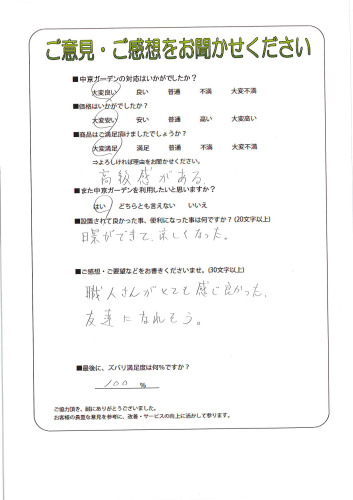 ご意見・ご感想をお聞かせください
■中京ガーデンの対応はいかがでしたか?
大変良い 良い 普通 不満 大変不満
■価格はいかがでしたか?
大変安い 安い 普通 高い 大変高い
■商品はご満足頂けましたでしょうか?
大変満足 満足 普通 不満 大変不満
⇒よろしければ理由をお聞かせください。
高級感がある。
■また中京ガーデンを利用したいと思いますか?
はい どちらとも言えない いいえ
■設置されて良かった事、便利になった事は何ですか? (20文字以上)
日影ができて、涼しくなった。
■ご感想・ご要望などをお書きくださいませ。(30文字以上)
職人さんがとても感じ良かった、
友達になれそう。
■最後に、ズバリ満足度は何%ですか?
100 %
ご協力頂き、誠にありがとうございました。
お客様の貴重な意見を参考に、改善・サービスの向上に活かして参ります。